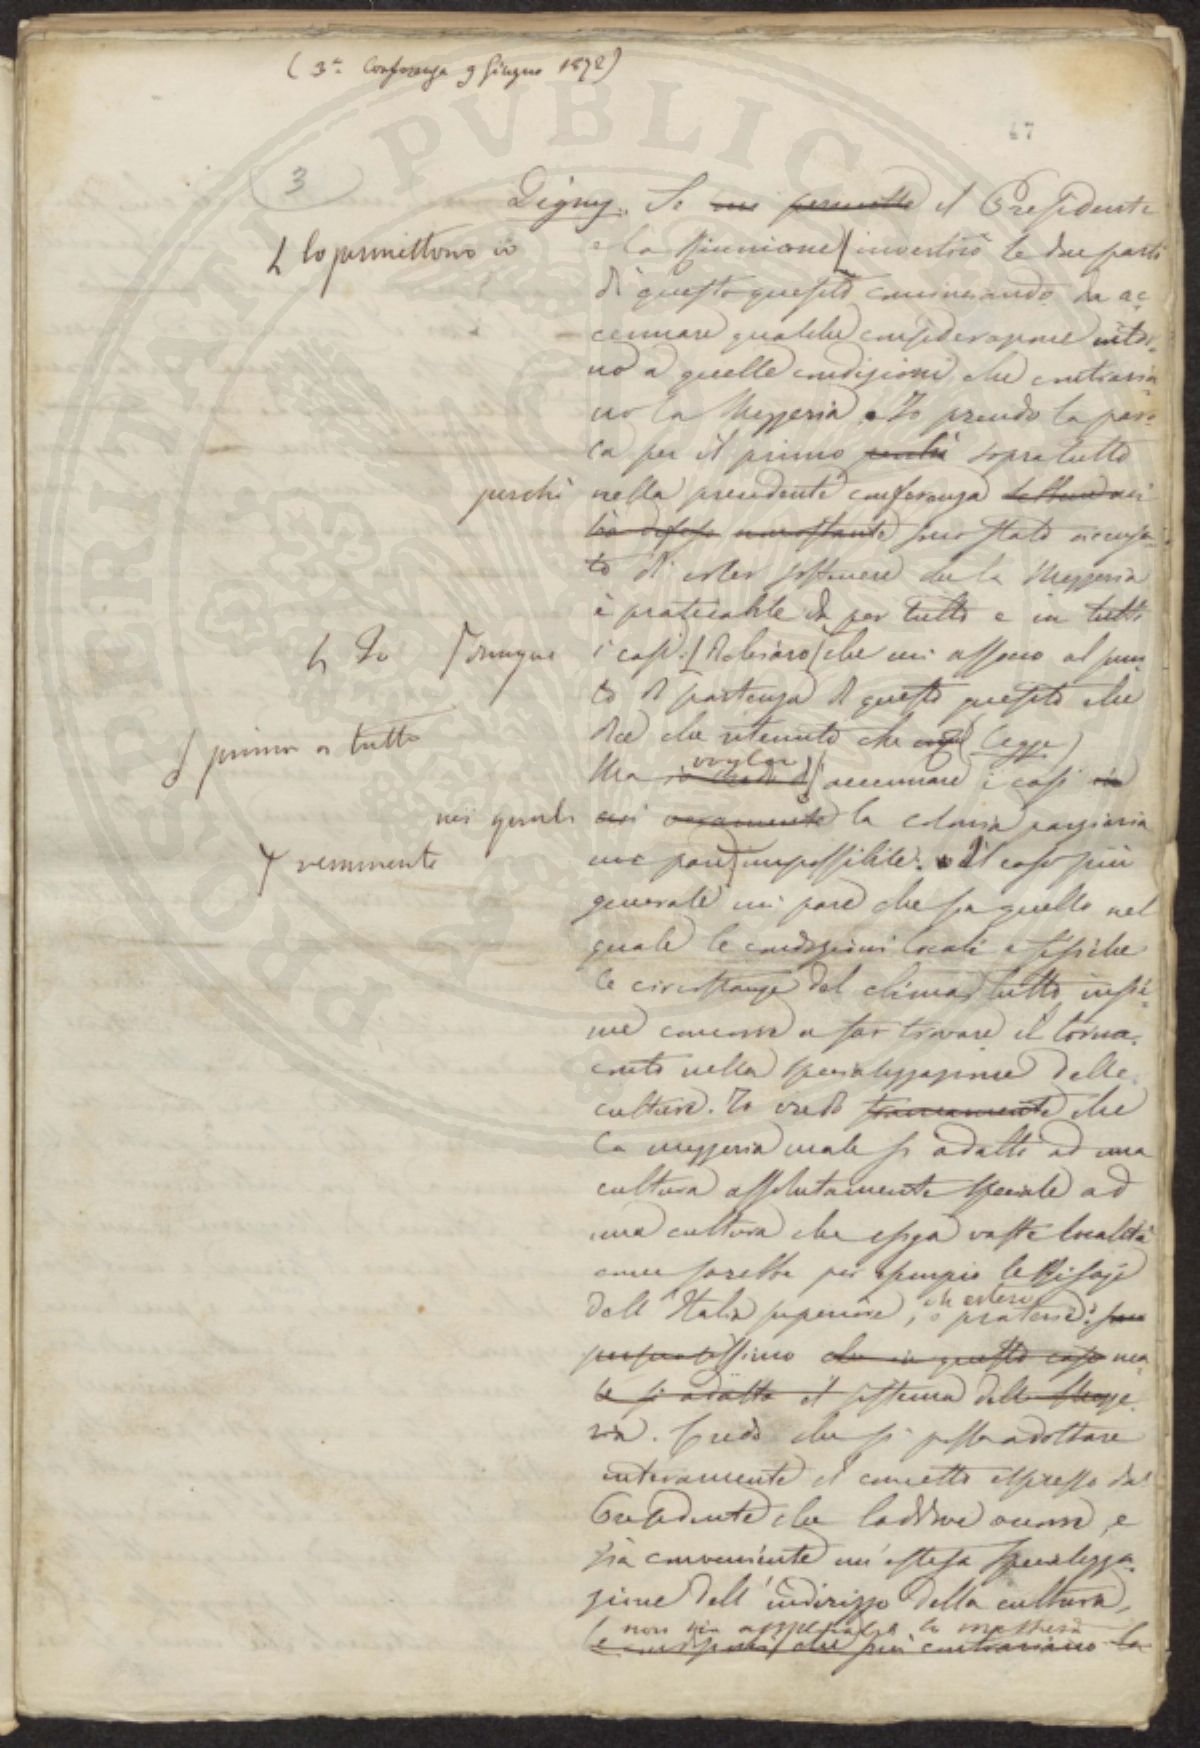 (3ª Conferenza 9 Giugno 1872)
47
3
Digny. Se mi permette il Presidente
lo permettono io
e la Riunione invertirò le due parti
di questo quesito cominciando da ac-
cennare qualche considerazione intor-
no a quelle condizioni che contraria-
no la Mezzeria. Io prendo la paro-
la per il primo perchè sopratutto
perchè
nella precedente conferenza
nonostante sono stato accusa-
to di voler sostenere che la Mezzeria
è praticabile da per tutto e in tutti
Io dunque
i casi. Dichiaro che mi associo al pun-
to di partenza di questo quesito che
dice che ritenuto che (Legge)
prima di tutto
Ma io credo di accennare i casi in
voglio
nei quali
cui veramente la colonia parziaria
veramente
mi pare impossibile. Il caso più
generale mi pare che sia quello nel
quale le condizioni locali e fisiche
le circostanze del clima, tutto insie-
me concorre a far trovare il torna-
conto nella specializzazione delle
culture. Io credo francamente che
la mezzeria male si adatti ad una
cultura assolutamente speciale ad
una cultura che esiga vaste località
come sarebbe per esempio le Risaje
dell'Italia superiore, o praterie sono
estese
persuasissimo che in questo caso ma-
le si adatta il sistema della Mezze-
ria. Credo che si possa adottare
interamente il concetto espresso dal
Presidente che laddove occorre, e
sia conveniente un'estesa specializza-
zione dell'indirizzo della cultura,
non sia applicabile la mezzeria
le condizioni che più contrariano la
PROPERITATI PUBLIC